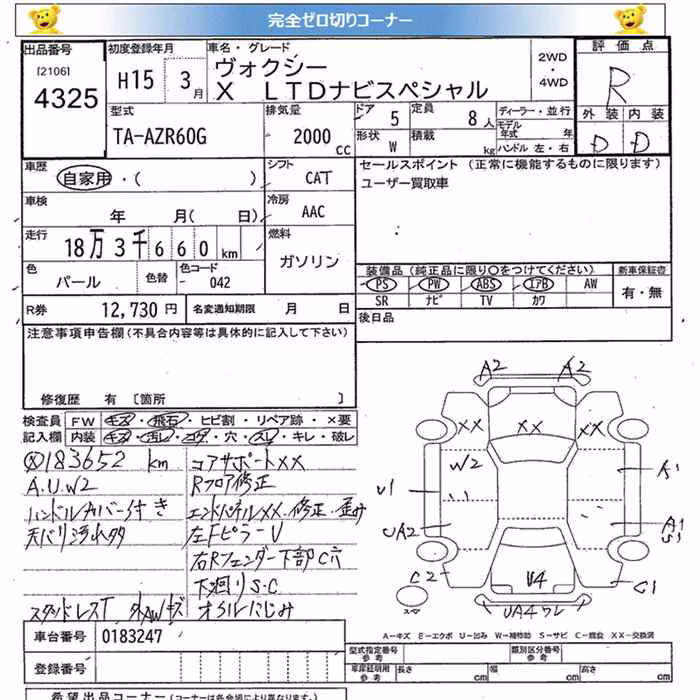 完全ゼロ切りコーナー
出品番号
[2106]
4325
初度登録年月
H15 3月
車名・グレード
ヴォクシー
X LTDナビスペシャル
2WD
・
4WD
評価点
R
外装 内装
D D
型式
TA-AZR60G
排気量
2000 CC
ドア 5
定員 8人
形状 W
積載 kg
ディーラー・並行
モデル年式 年
ハンドル 左・右
車歴
自家用・( )
シフト
CAT
セールスポイント (正常に機能するものに限ります)
ユーザー買取車
車検
年 月( 日)
冷房
AAC
走行
18万3千660km
燃料
ガソリン
色
パール
色替
色コード
042
装備品(純正品に限り○をつけてください)
PS PW ABS エアB AW
SR ナビ TV カワ
新車保証書
有・無
R券 12,730円
名変通知期限 月 日
後日品
注意事項申告欄(不具合内容等は具体的に記入して下さい)
修復歴 有 〔箇所 〕
検査員記入欄
FW キズ・飛石・ヒビ割・リペア跡・×要
内装 キズ・汚レ・コゲ・穴・スレ・キレ・破レ
183652 km
A.U.W2
ハンドルカバー付き
天バリ汚れ多
スタッドレスT 外AWキズ
コアサポートXX
Rフロア修正
エンドパネルXX・修正・歪み
左Fピラー U
右Rフェンダー下部C穴
下廻りS・C
オイルにじみ
A2 A2
XX XX XX
W2
U1
A1
UA2
A1
U1
C2
U4
C1
UA4ワレ
A-キズ E-エクボ U-凹み W-補修跡 S-サビ C-腐食 XX-交換済
車台番号 0183247
登録番号
型式指定番号 参考
類別区分番号 参考
車庫証明用 参考
長さ cm
幅 cm
高さ cm
希望出品コーナー(コーナーは各会場により異なります)